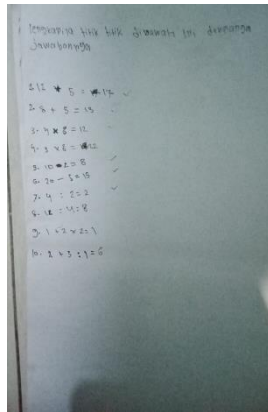 lengkapilah titik titik dibawah ini dengan
Jawabannya
1. 12 * 5 = 17
2. 8 + 5 = 13
3. 4 × 8 = 12
4. 3 × 8 = 12
5. 10 * 2 = 8
6. 20 - 5 = 15
7. 4 : 2 = 2
8. 12 : 4 = 8
9. 1 + 2 × 2 = 1
10. 2 + 3 : 1 = 6